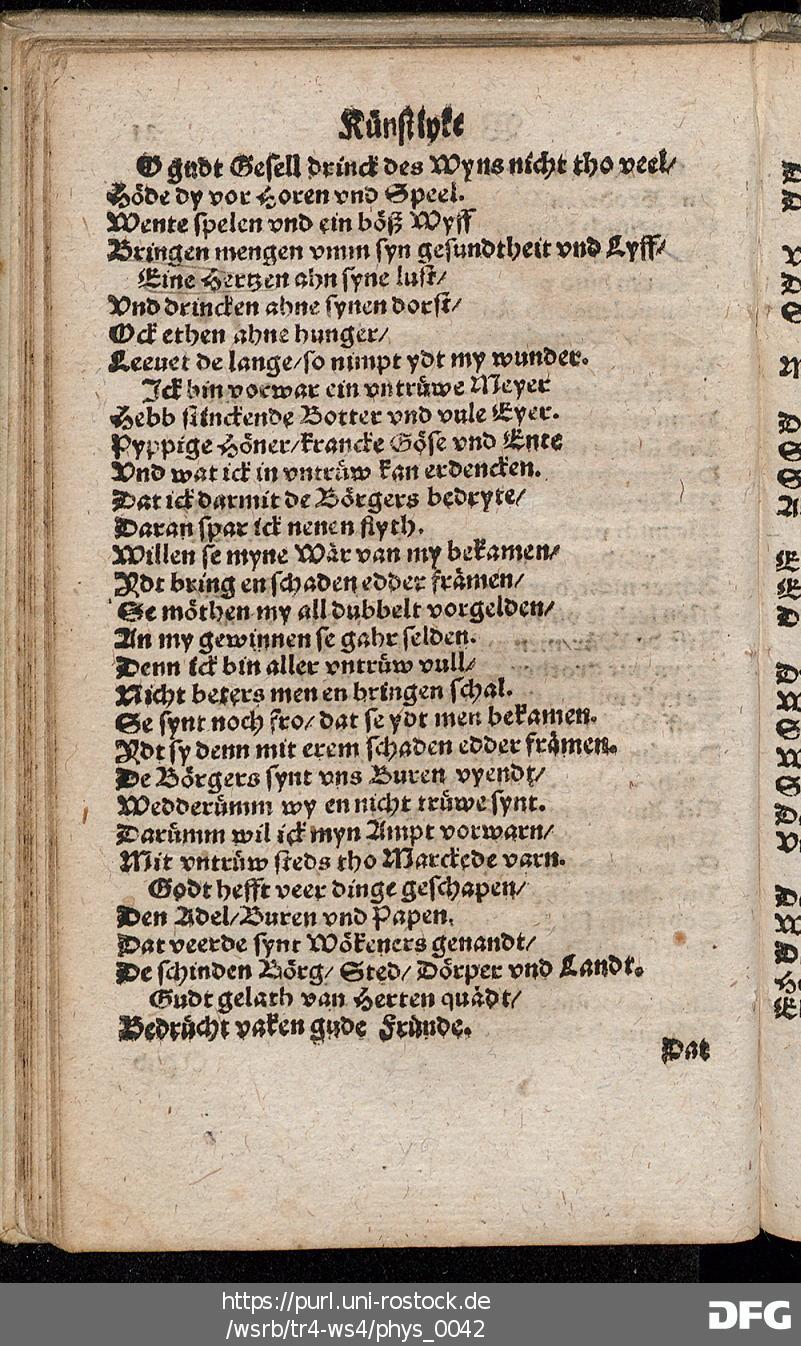 Künstlyke
O gudt Gesell drinck des Wyns nicht tho veel/
Höde dy vor Horen vnd Speel.
Wente spelen vnd ein böß Wyff
Bringen mengen vmm syn gesundtheit vnd Lyff/
Eine Hertzen ahn syne lust/
Vnd drincken ahne synen dorst/
Ock ethen ahne hunger/
Leevet de lange/so nimpt ydt my wunder.
Ick bin vorwar ein vntrüwe Meyer
Hebb stinckende Botter vnd vule Eyer.
Pyppige Höner/krancke Göse vnd Ente
Vnd wat ick in vntrüw kan erdencken.
Dat ick darmit de Börgers bedryte/
Daran spar ick nenen flyth.
Willen se myne Wår van my bekamen/
Ydt bring en schaden edder främen/
Se möthen my all dubbelt vorgelden/
An my gewinnen se gahr selden.
Denn ick bin aller vntrüw vull/
Nicht beters men en bringen schal.
Se synt noch fro/ dat se ydt men bekamen.
Ydt sy denn mit erem schaden edder främen.
De Börgers synt vns Buren vyendt/
Wedderümm wy en nicht trüwe synt.
Darümm wil ick myn Ampt vorwarn/
Mit vntrüw steds tho Marckede varn.
Godt hefft veer dinge geschapen/
Den Adel/Buren vnd Papen.
Dat veerde synt Wökeners genandt/
De schinden Börg/ Sted/ Dörper vnd Landt.
Gudt gelath van Herten quädt/
Bedrücht vaken gude Fründe.
Dat
https://purl.uni-rostock.de
/wsrb/tr4-ws4/phys_0042
DFG